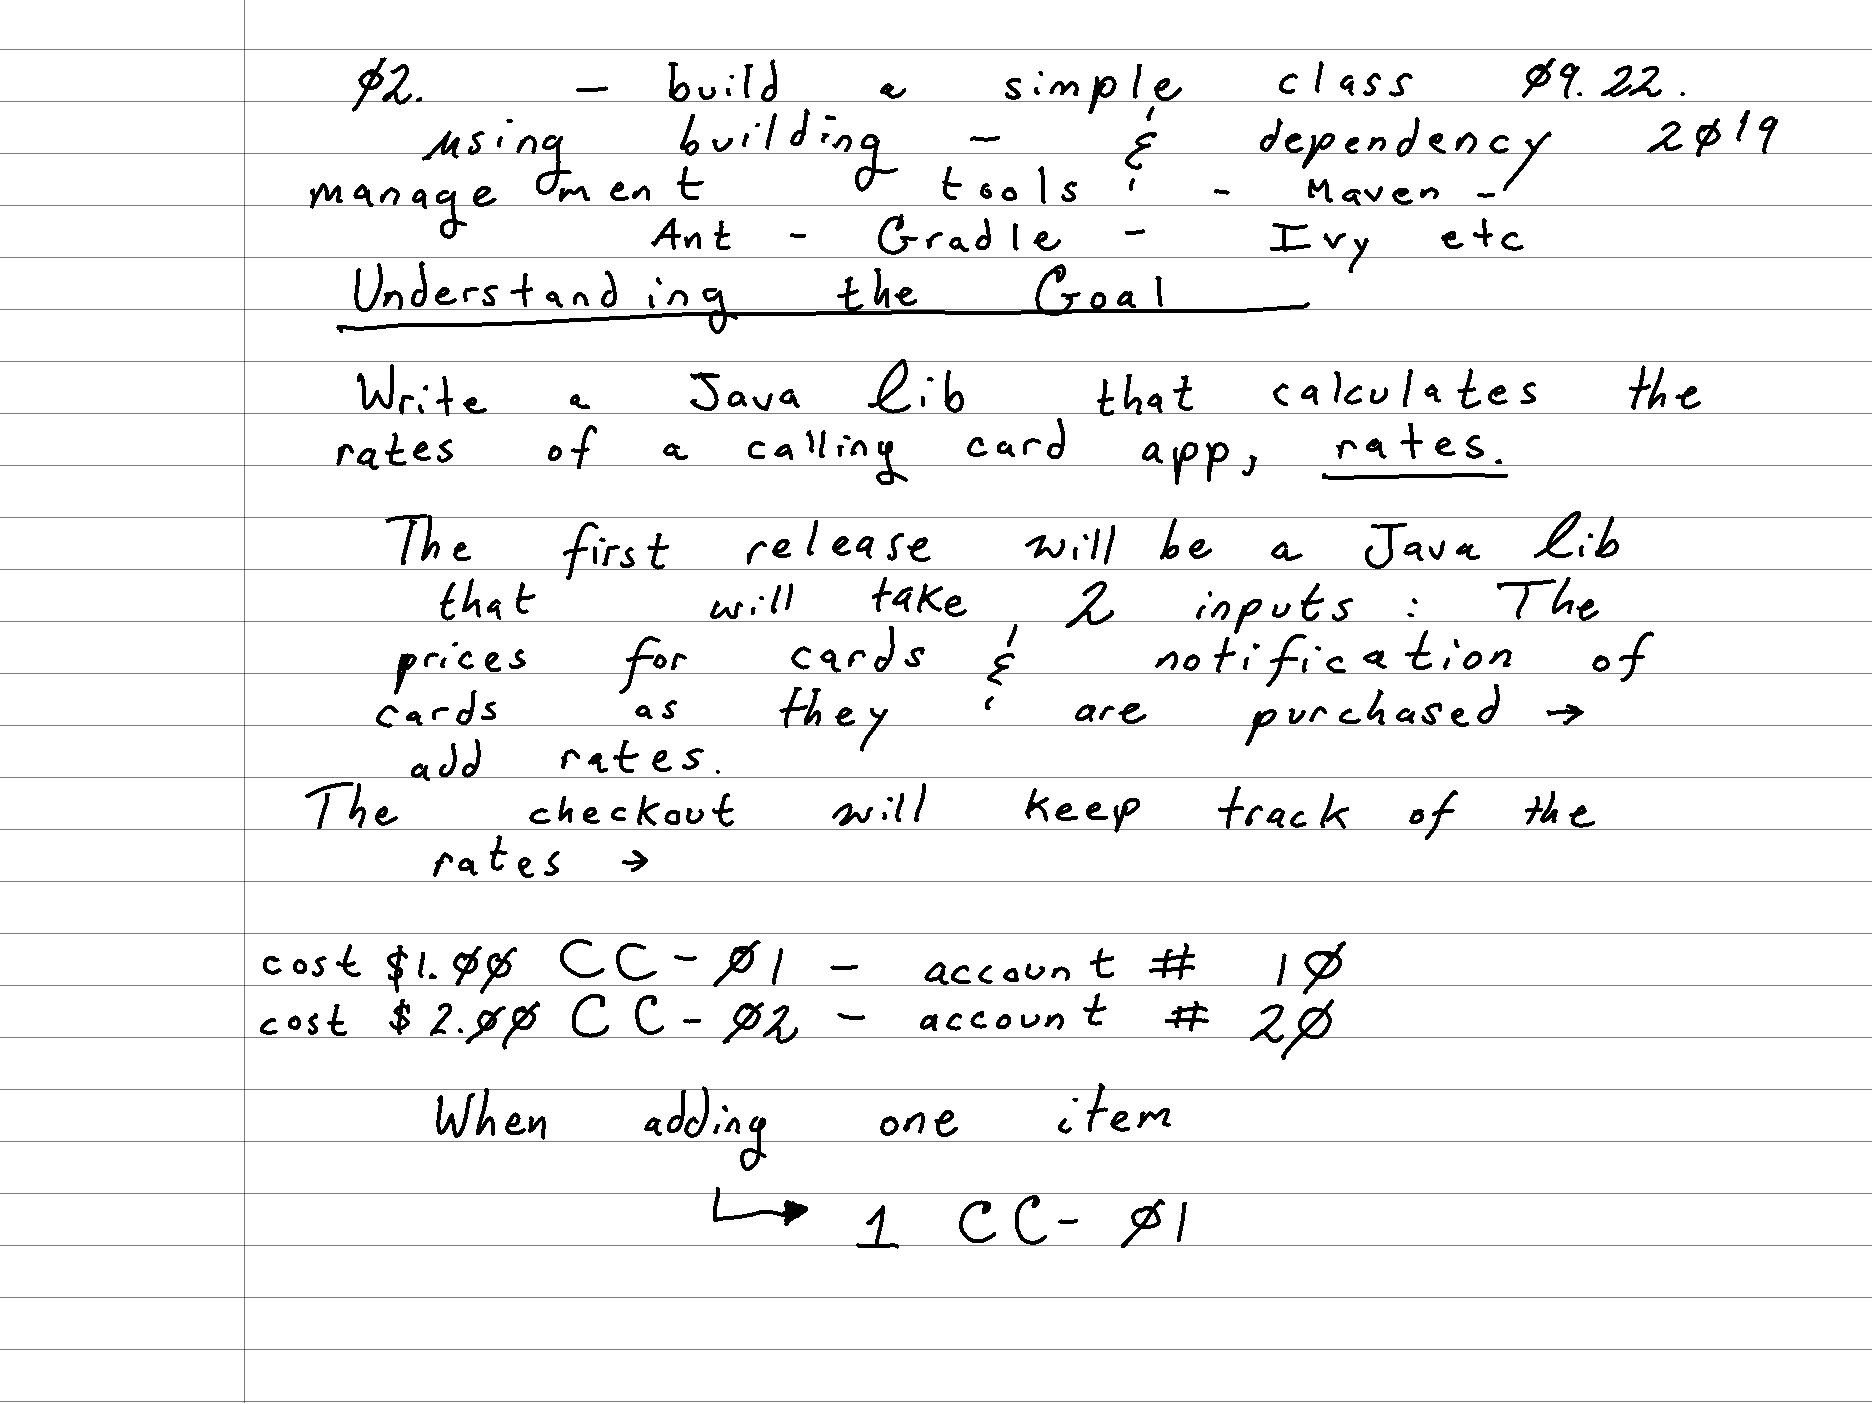 Ø2. - build a simple class Ø9.22.
using building - & dependency 2Ø19
management tools - Maven -
Ant - Gradle - Ivy etc
Understanding the Goal
Write a Java lib that calculates the
rates of a calling card app, rates.
The first release will be a Java lib
that will take 2 inputs : The
prices for cards & notification of
cards as they are purchased →
add rates.
The checkout will keep track of the
rates →
cost $1.ØØ CC-Ø1 - account # 1Ø
cost $2.ØØ CC-Ø2 - account # 2Ø
When adding one item
↳ 1 CC-Ø1